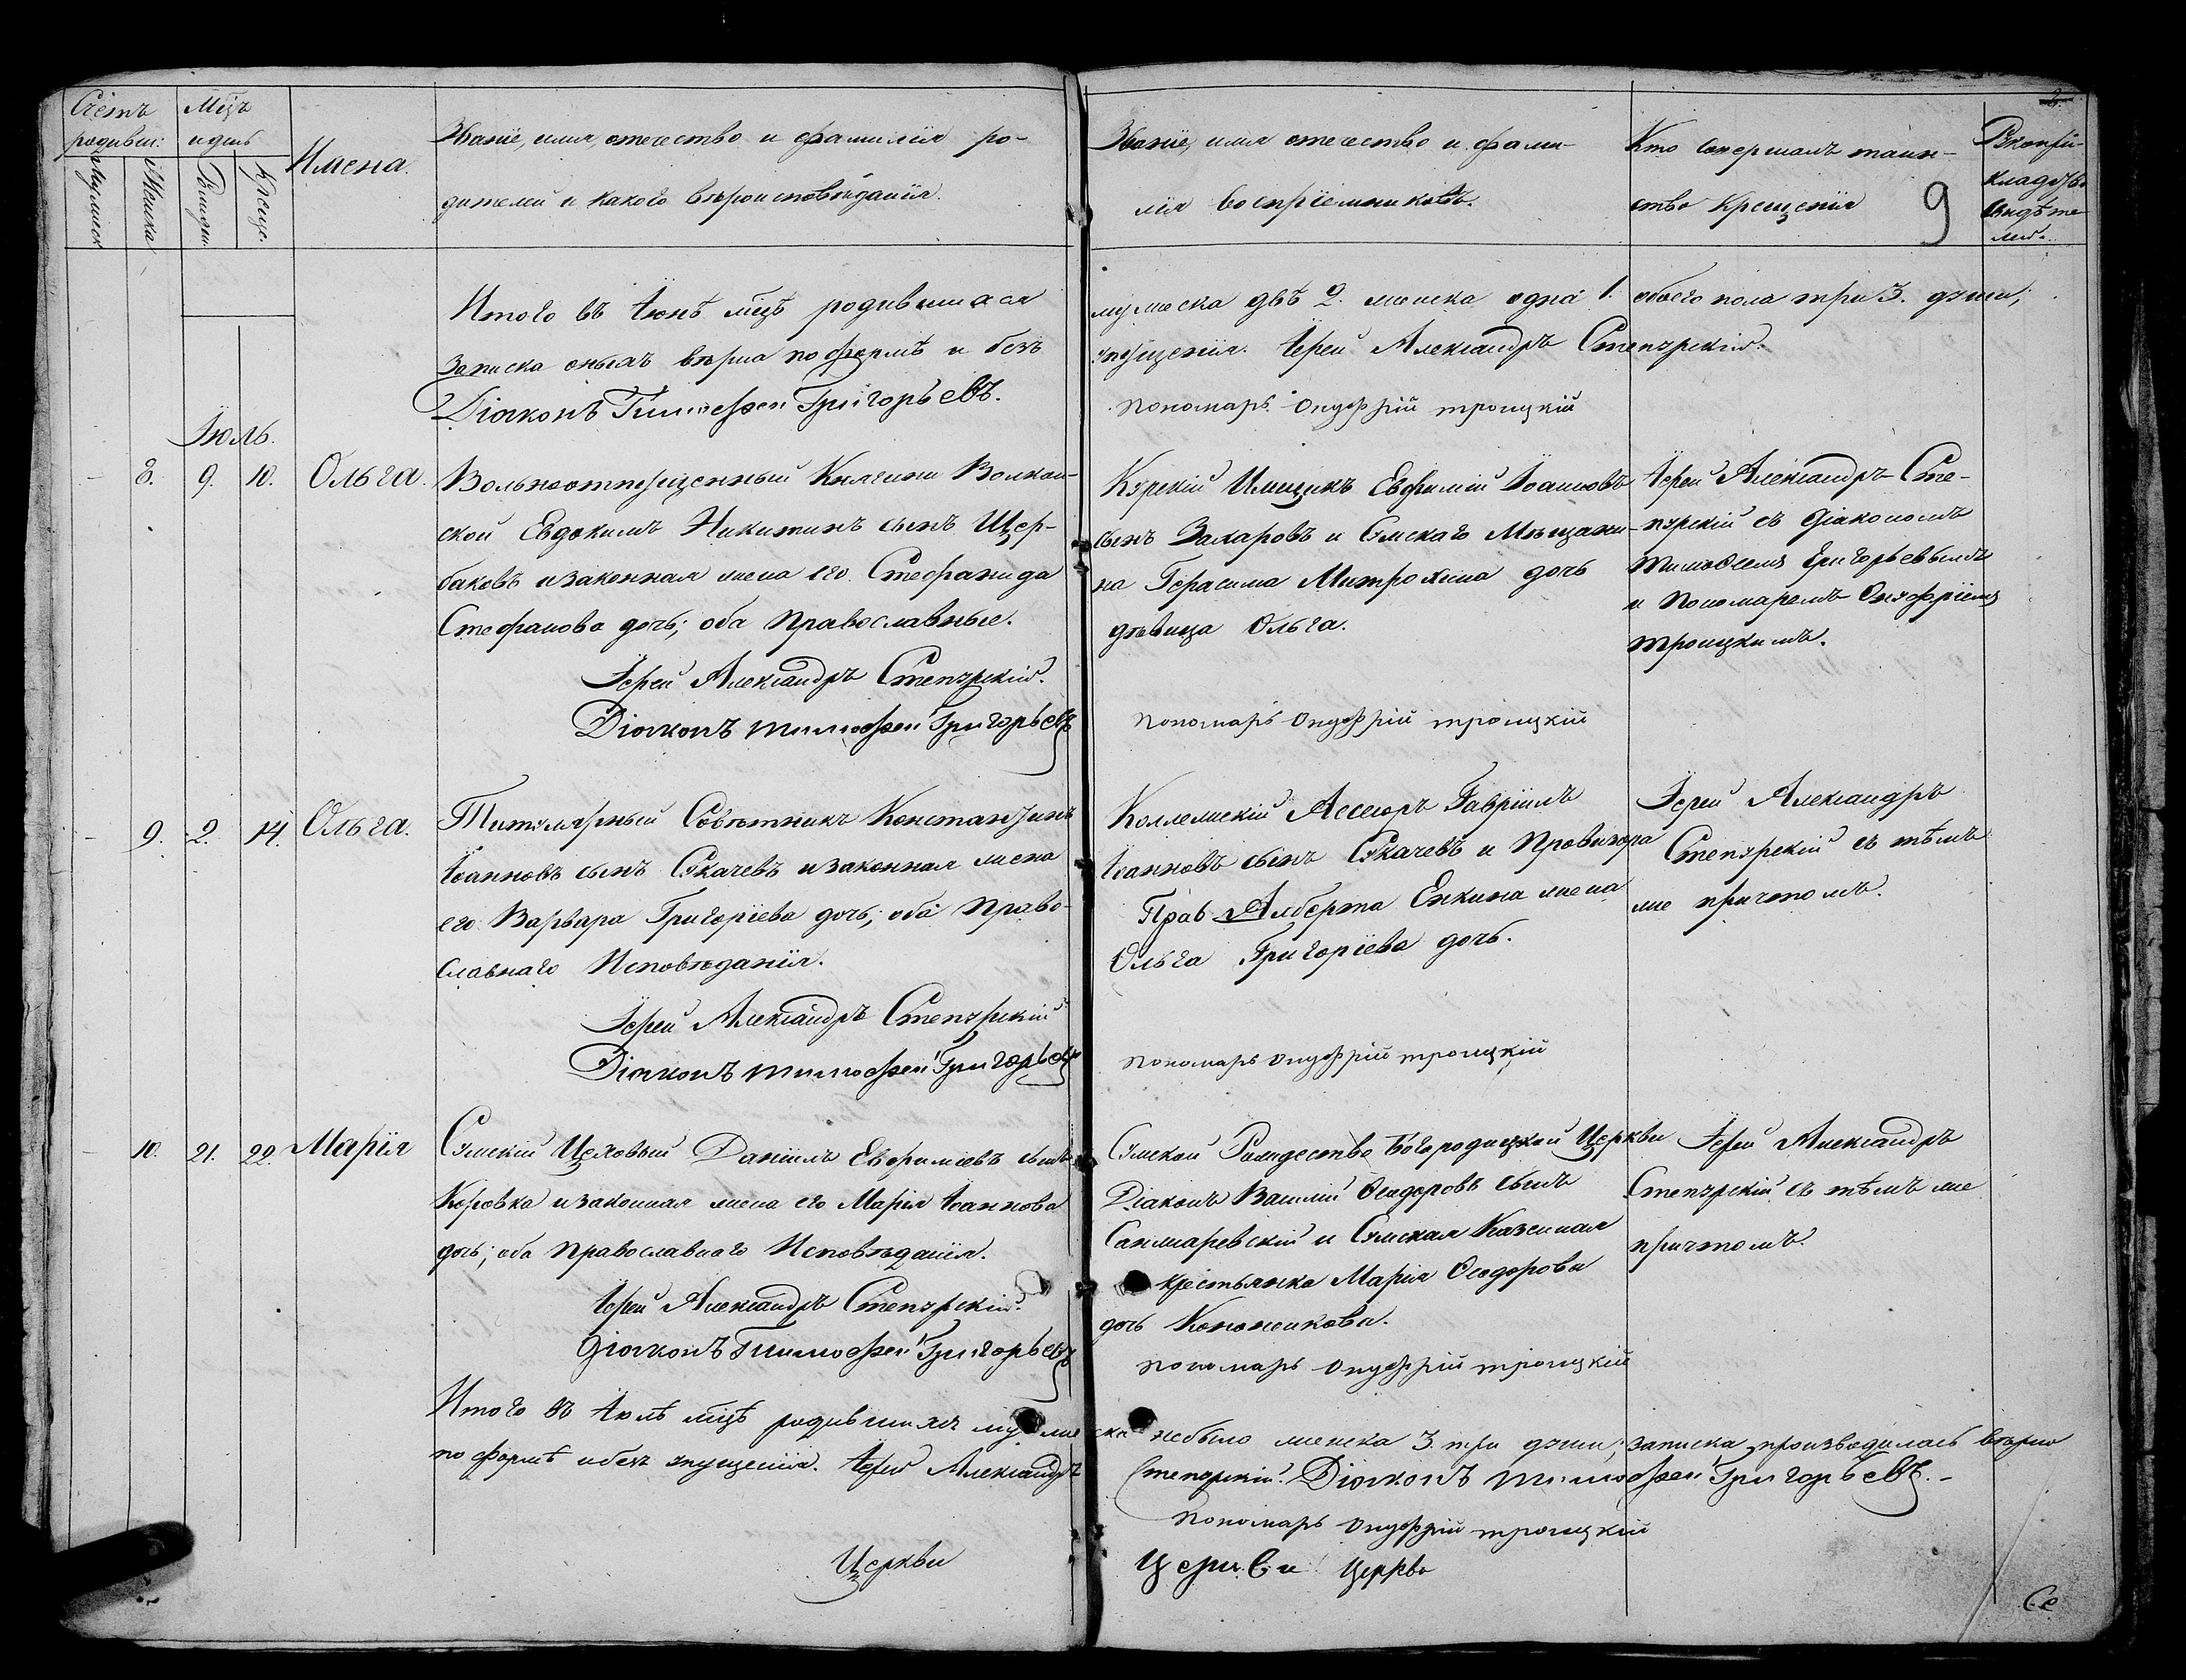 Счетъ
родивш:
Мужеска
Женска
Мцъ
и день
Рожден.
Креще.
Имена.
Званіе, имя, отечество и фамилія ро-
дителей и какого вѣроисповѣданія.
Званіе, имя отечество и фами-
лія воспріемниковъ.
Кто совершалъ таин-
ство крещенія
9
Рукопри-
кладство
свидѣте
лей.
Итого въ Іюнѣ мцѣ родившихся
мужеска двѣ 2. женска одна 1. обоего пола три 3. души;
Записка оныхъ вѣрна по формѣ и безъ
упущенія. Іерей Александръ Степурскій.
Діяконъ Тимофей Григорьевъ.
Пономарь Онуфрій троицкій
Іюль.
8. 9. 10. Ольга.
Вольноотпущенный Княгини Волкон-
ской Евдокимъ Никитинъ сынъ Щер-
баковъ и законная жена его Стефанида
Стефанова дочь; оба Православные.
Іерей Александръ Степурскій.
Діяконъ тимофей Григорьевъ
Курскій Ямщикъ Евфимій Іоанновъ
сынъ Захаровъ и Сумскаго Мѣщани-
на Герасима Митрохина дочь
дѣвица Ольга.
Пономарь Онуфрій троицкій
Іерей Александръ Сте-
пурскій съ Діакономъ
Тимоѳеемъ Григорьевымъ
и Пономаремъ Онуфріемъ
Троицкимъ.
9. 2. 14. Ольга.
Титулярный Совѣтникъ Константинъ
Іоанновъ сынъ Скачевъ и законная жена
его Варвара Григоріева дочь; оба Право-
славнаго Исповѣданія.
Іерей Александръ Степурскій
Діяконъ тимофей Григорьевъ
Коллежскій Ассесоръ Гавріилъ
Іоанновъ сынъ Скачевъ и Провизора
Алберта Енкина жена
Ольга Григоріева дочь.
Пономарь Онуфрій троицкій
Іерей Александръ
Степурскій съ тѣмъ
же причтомъ.
10. 21. 22. Марія
Сумскій Цеховый Даніилъ Евфиміевъ сынъ
Коровка и законная жена его Марія Іоаннова
дочь; оба Православнаго Исповѣданія.
Іерей Александръ Степурскій.
Діяконъ Тимофей Григорьевъ
Сумской Рождество Богородицкой Церкви
Діаконъ Василій Ѳеодоровъ сынъ
и Сумская Казенная
крестьянка Марія Ѳеодорова
дочь
Пономарь Онуфрій троицкій
Іерей Александръ
Степурскій съ тѣмъ же
причтомъ.
Итого въ Іюлѣ мцѣ родившихся мужеска небыло женска 3. три души; записка производилась вѣрно
по формѣ и безъ упущенія. Іерей Александръ Степурскій. Діяконъ тимофей Григорьевъ.
Пономарь Онуфрій троицкій
Церкви
Церкви
Церкво
Се